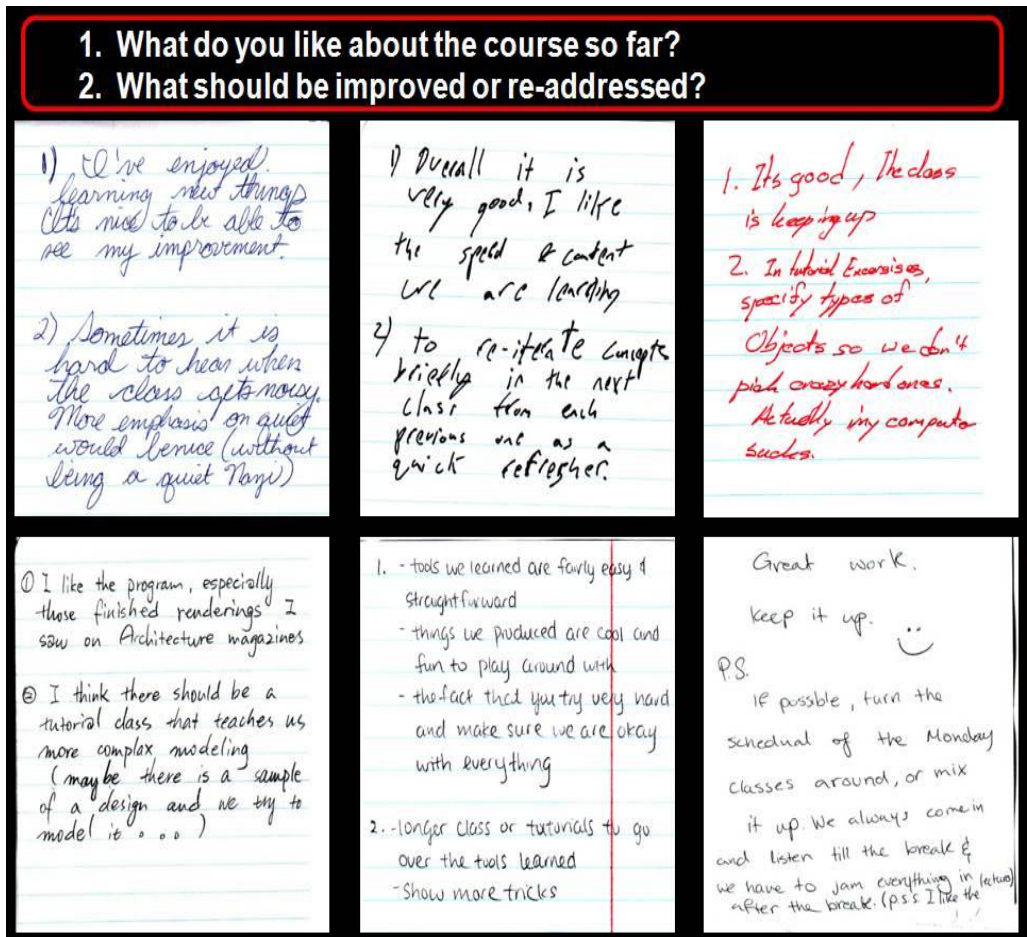 1. What do you like about the course so far?
2. What should be improved or re-addressed?
1) I've enjoyed.
learning new things
It's nice to be able to
see my improvement.
2) Sometimes it is
hard to hear when
the class gets noisy.
More emphasis on quiet
would be nice (without
being a quiet Nazi)
1) Overall it is
very good, I like
the speed & content
we are learning
2) to re-iterate concepts
briefly in the next
class from each
previous one as a
quick refresher.
1. Its good, The class
is keeping up
2. In tutorial Excersises,
specify types of
Objects so we don't
pick crazy hard ones.
Actually my computer
sucks.
① I like the program, especially
those finished renderings I
saw on Architecture magazines
② I think there should be a
tutorial class that teaches us
more complax modeling
(maybe there is a sample
of a design and we try to
model it . . . )
1. - tools we learned are fairly easy &
straightforward
- things we produced are cool and
fun to play around with
- the fact that you try very hard
and make sure we are okay
with everything
2. - longer class or tutorials to go
over the tools learned
- Show more tricks
Great work.
keep it up.
P.S.
If possible, turn the
schedual of the Monday
classes around, or mix
it up. We always come in
and listen till the break &
we have to jam everything in
after the break. (p.s.s I like the lectures)